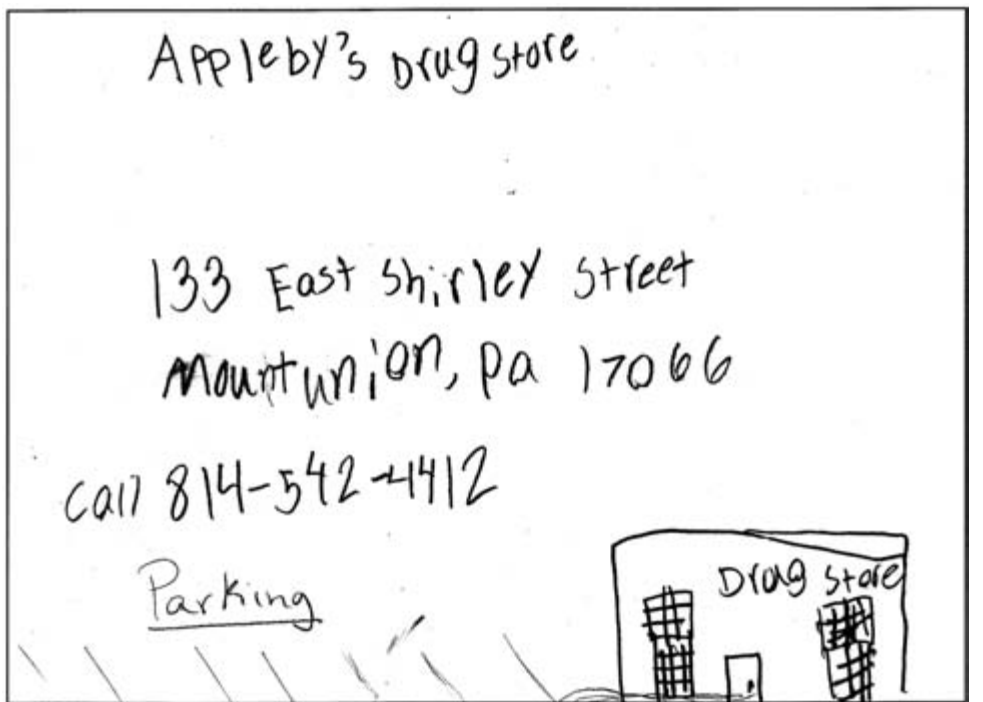 Appleby's Drug store
133 East Shirley Street
Mountunion, Pa 17066
Call 814-542-4412
Parking
Drug Store